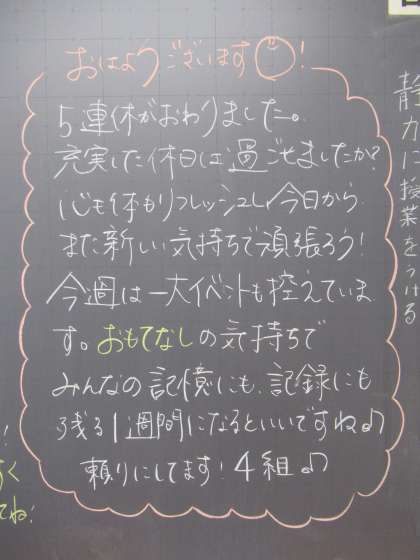 おはようございます!
5連休がおわりました。
充実した休日は過ごせましたか?
心も体もリフレッシュし今日から
また新しい気持ちで頑張ろう!
今週は一大イベントも控えていま
す。おもてなしの気持ちで
みんなの記憶にも、記録にも
残る1週間になるといいですね♪
頼りにしてます!4組♪
静かに授業をうける
!
すく
てね!